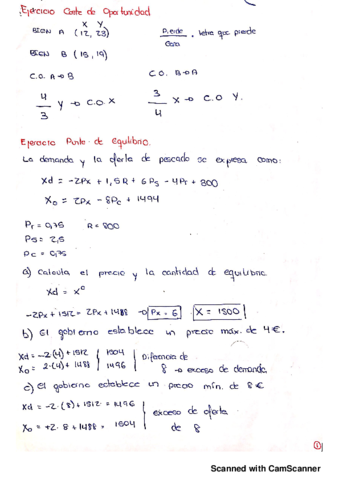 Ejercicio Coste de Oportunidad
X Y
BIEN A (12, 23)
Pierde
Gana
. letra que pierde
BIEN B (15, 19)
C.O. A→B
C.O. B→A
4/3 Y → C.O X
3/4 X → C.O Y.
Ejercicio Punto de equilibrio.
La demanda y la oferta de pescado se expresa como:
Xd = -2Px + 1,5R + 6Ps - 4Pr + 300
Xo = 2Px - 8Pc + 1494
Pr = 0,75 R = 800
Ps = 2,5
Pc = 0,75
a) Calcula el precio y la cantidad de equilibrio
Xd = X⁰
-2Px + 1512 = 2Px + 1488 → Px = 6 X = 1500
b) El gobierno establece un precio máx. de 4€.
Xd = -2·(4) + 1512 | 1504 | Diferencia de
Xo = 2·(4) + 1488 | 1496 | 8 → exceso de demanda
c) El gobierno establece un precio mín. de 8€
Xd = -2·(8) + 1512 = 1496 | exceso de oferta
Xo = +2·8 + 1488 = 1504 | de 8
1
Scanned with CamScanner